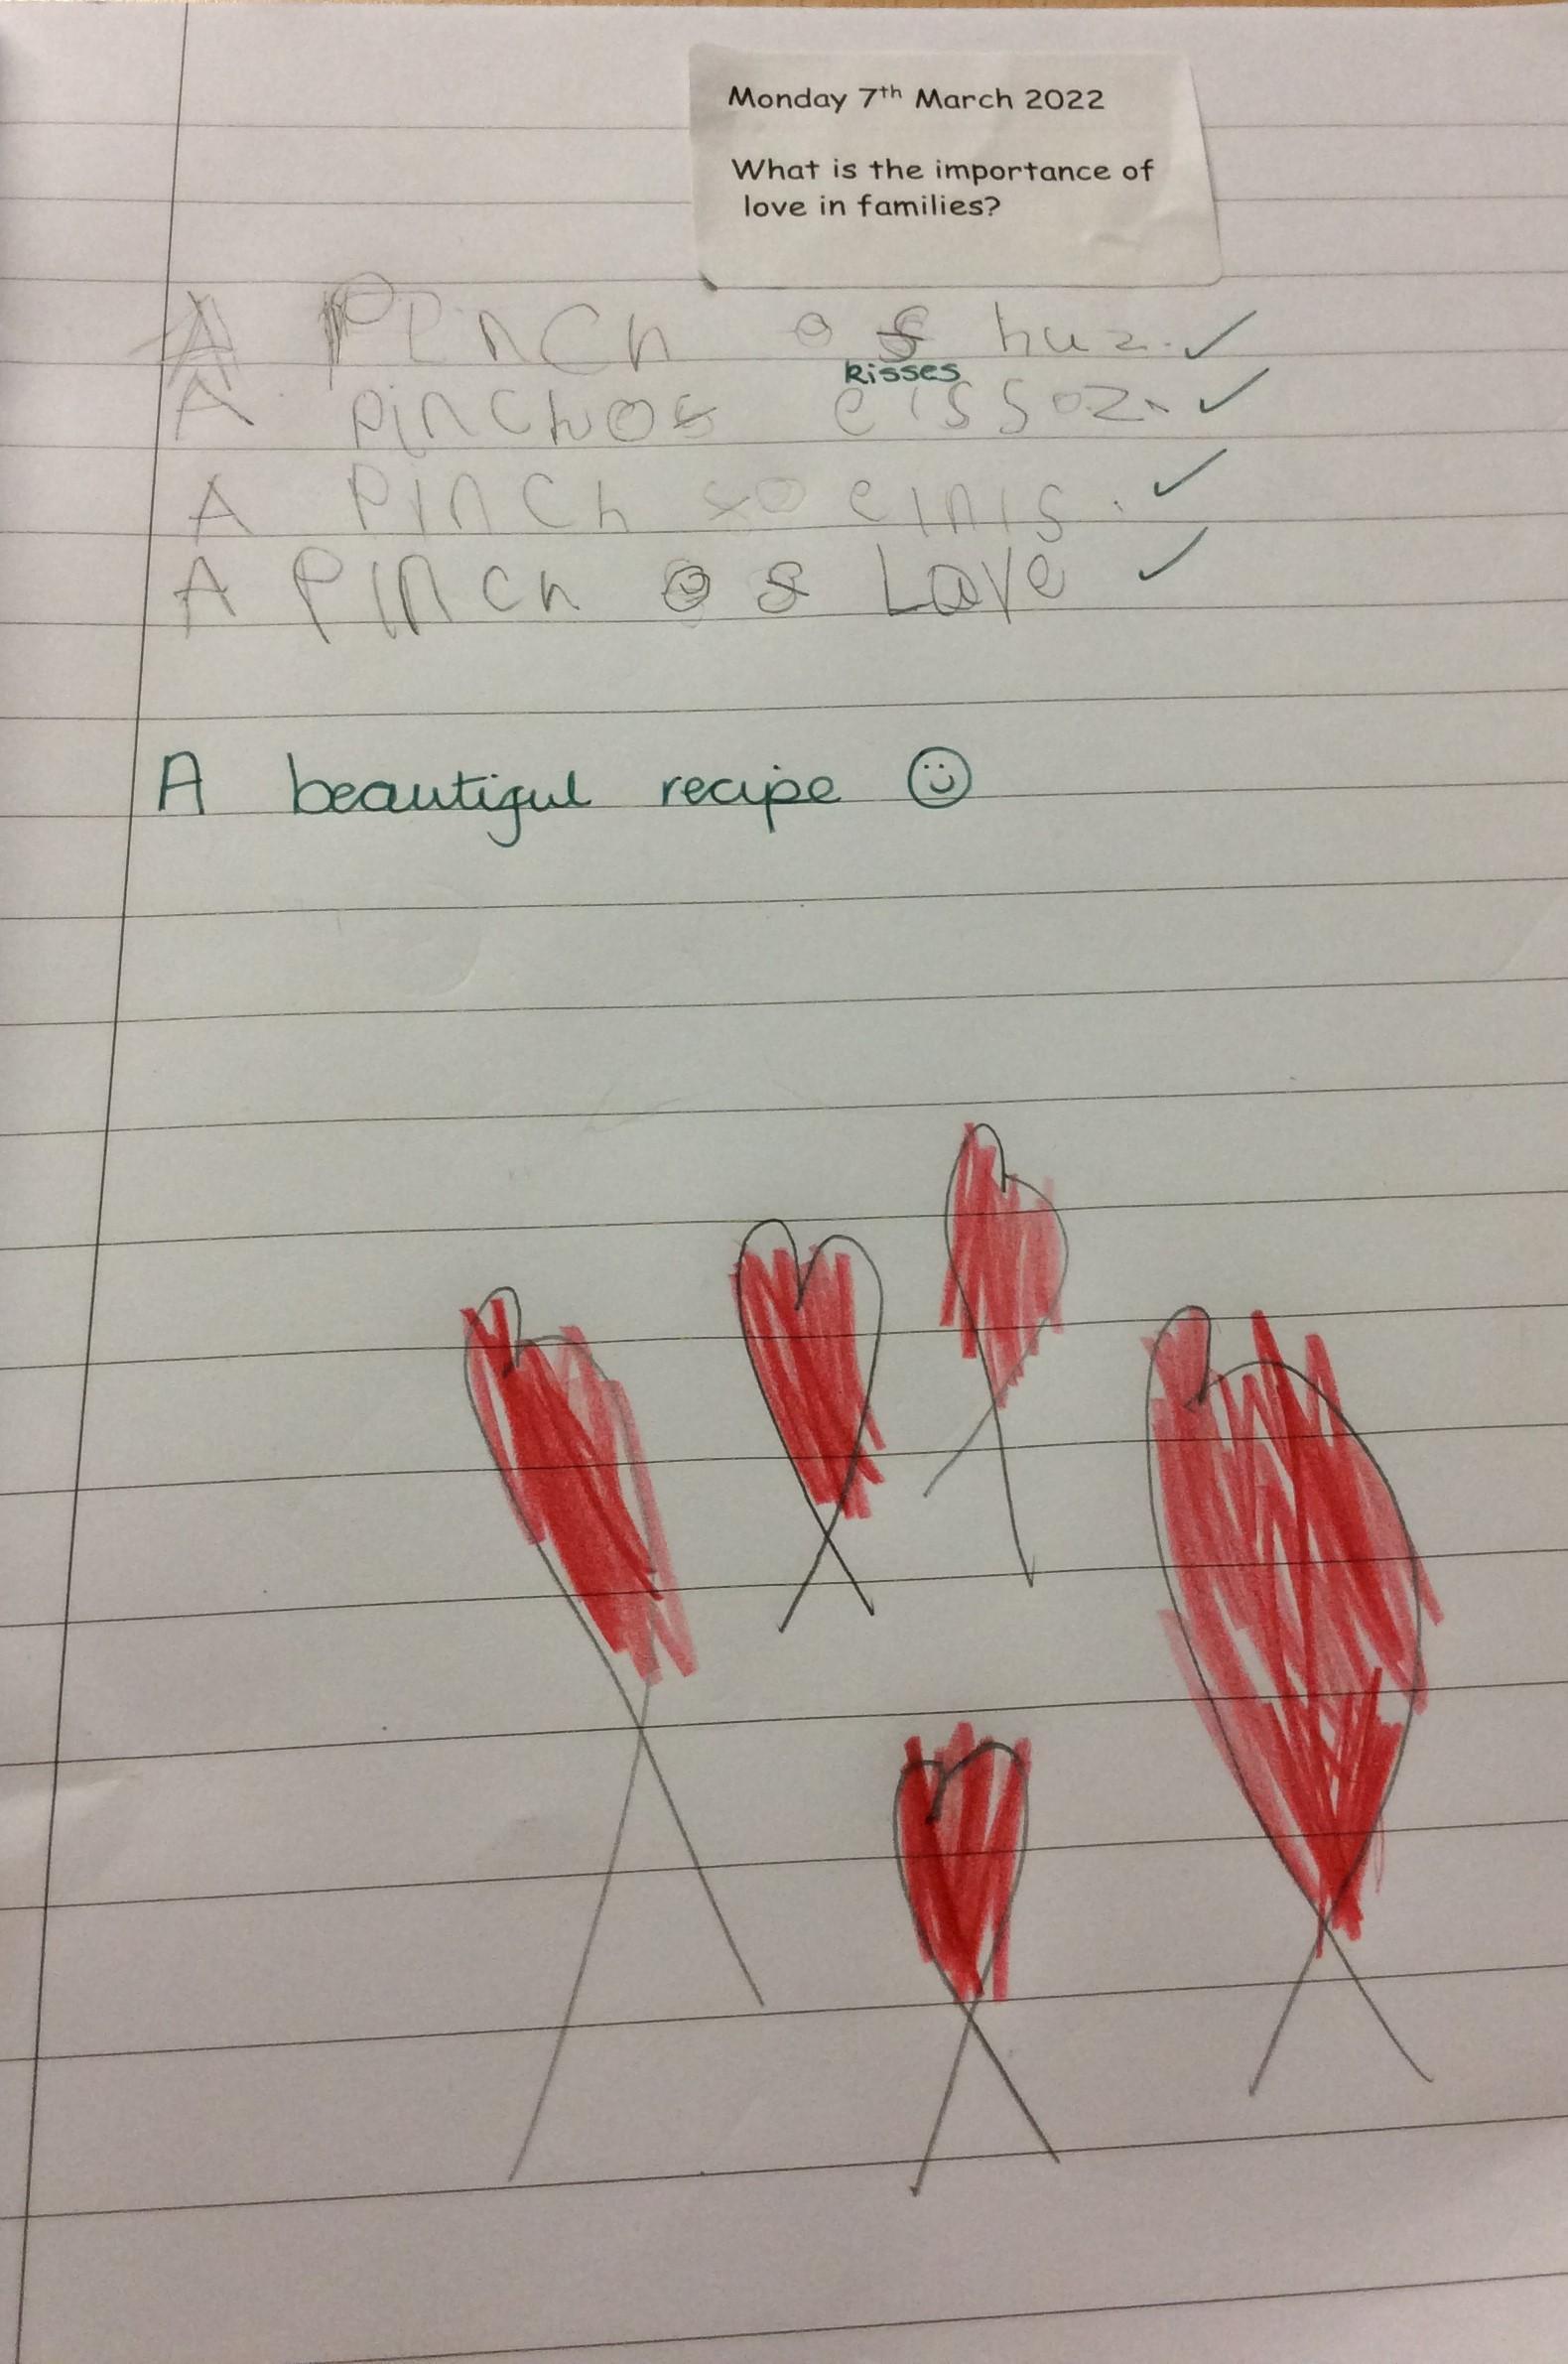 Monday 7th March 2022
What is the importance of
love in families?
A PinCh of huz.
kisses
A pinchof eissoz.
A PinCh fo einis.
A PinCh of Love
A beautiful recipe